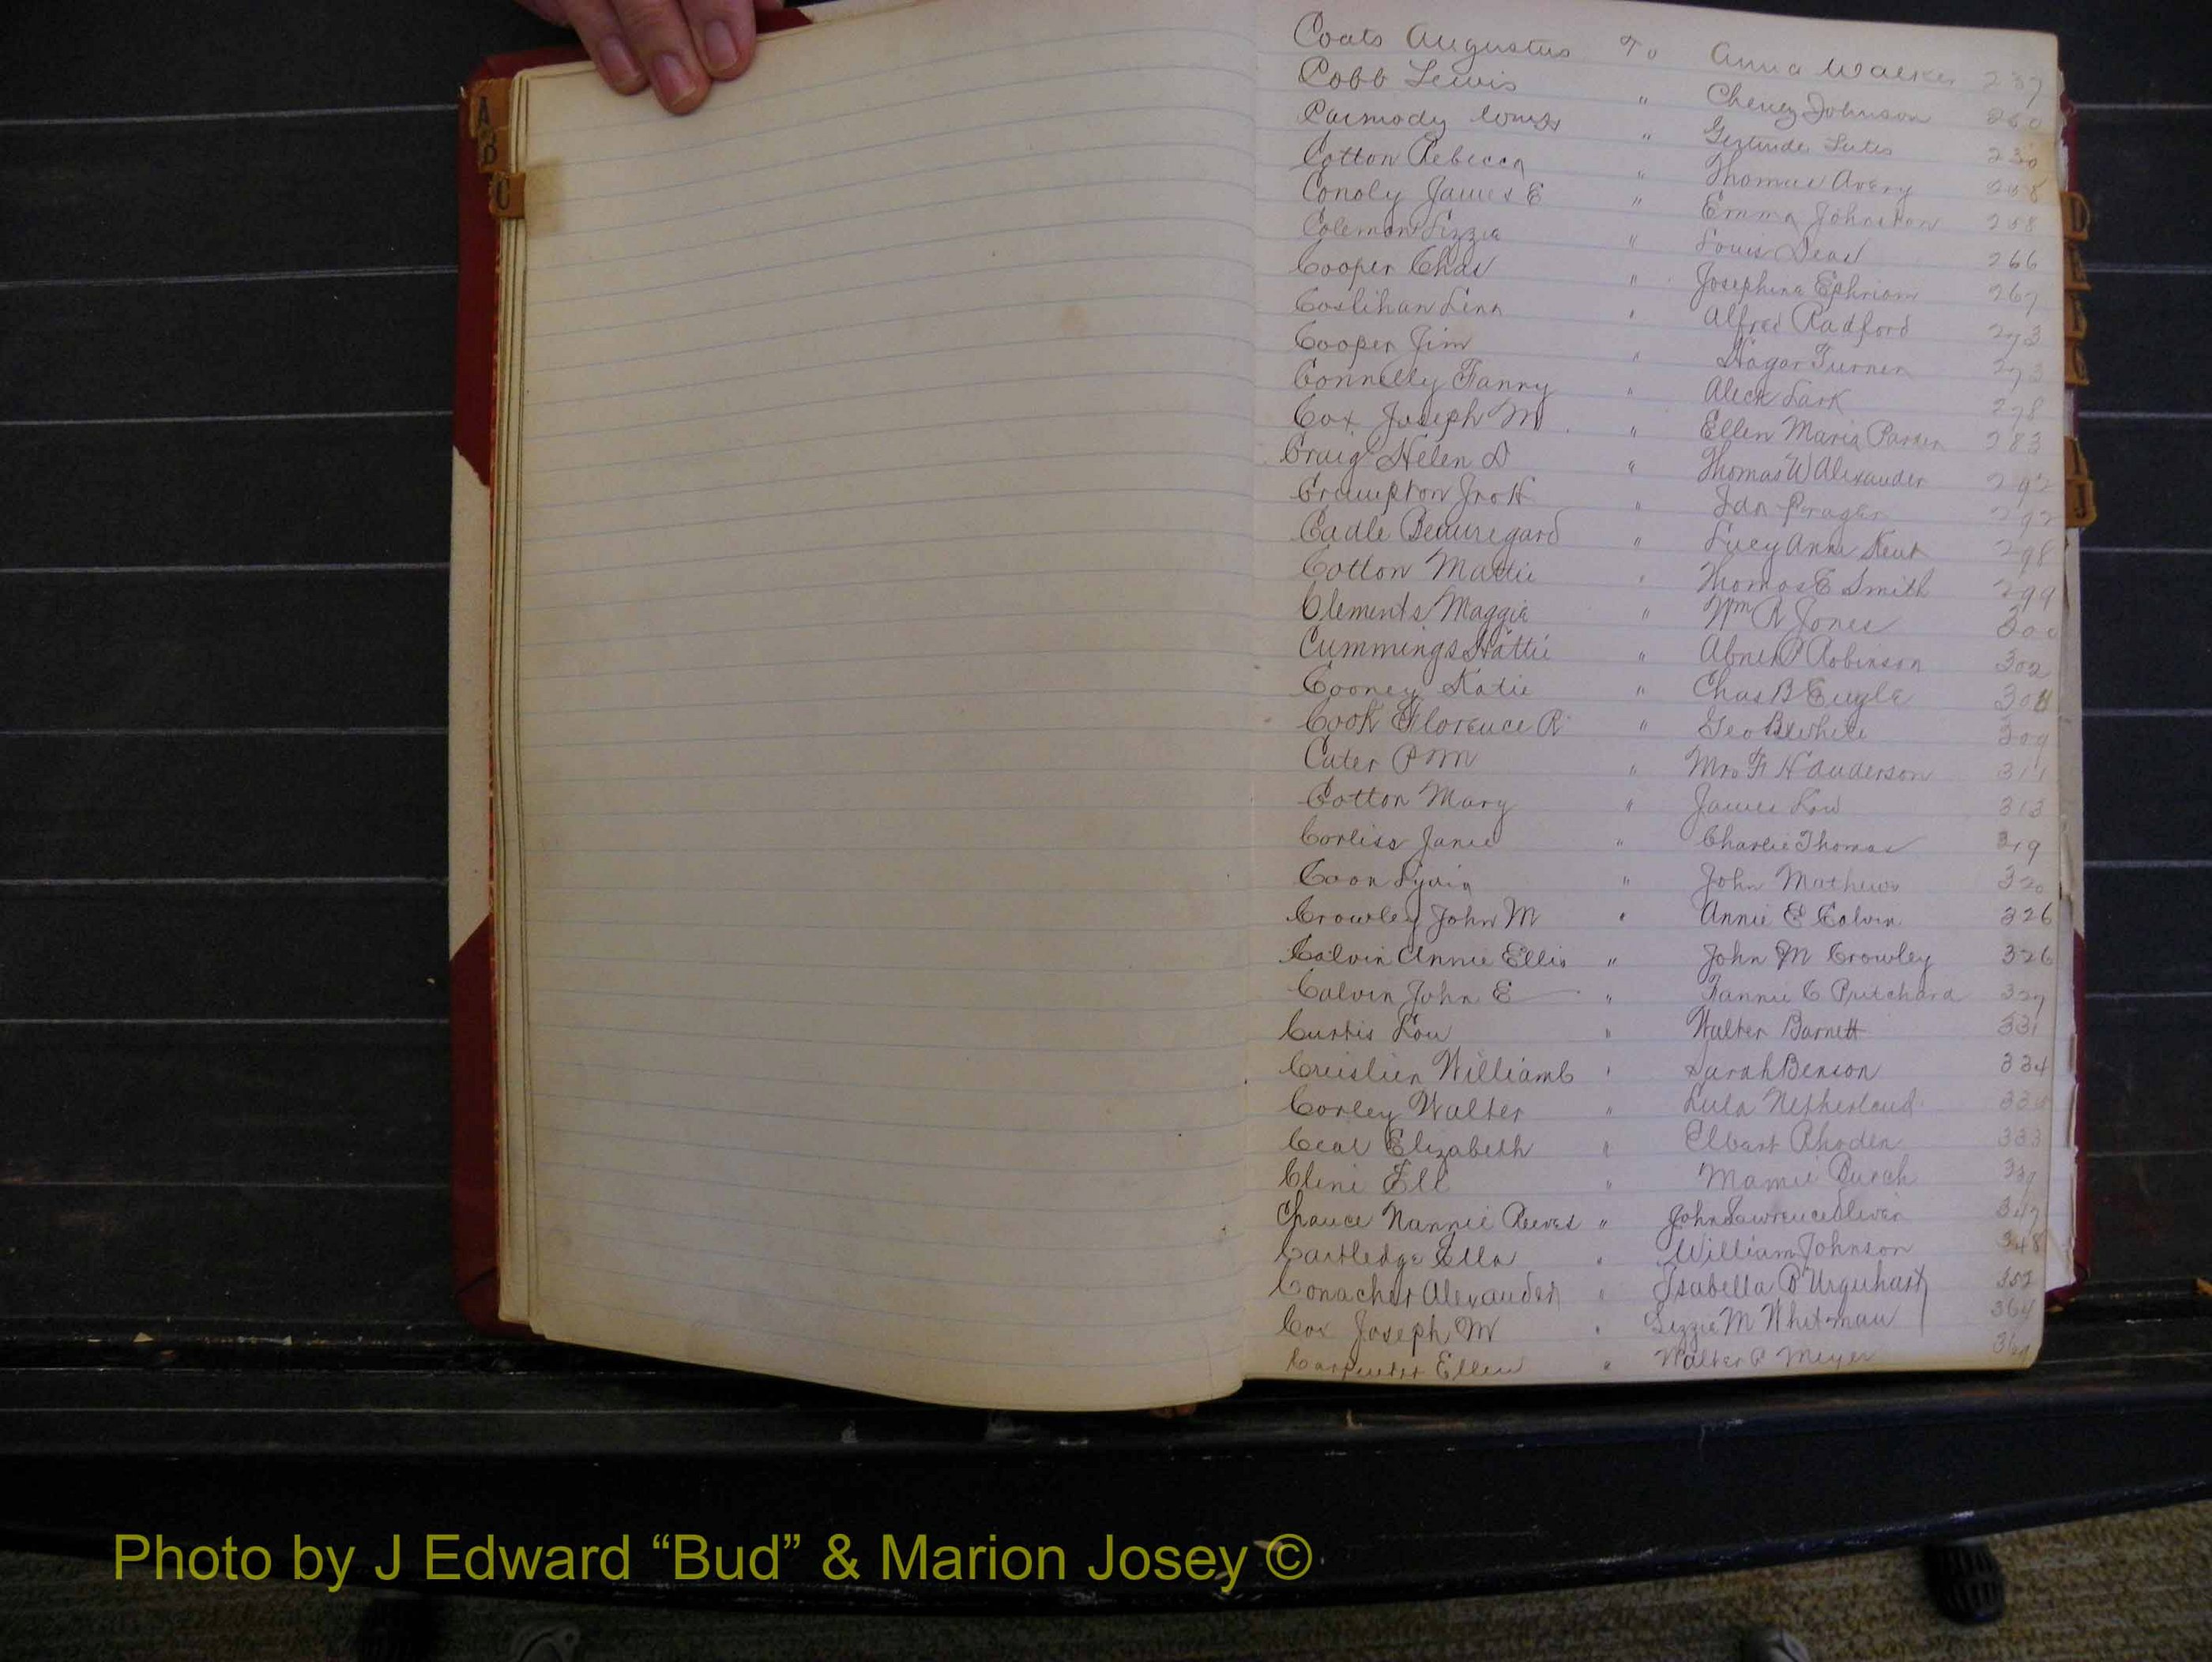 A
B
C
D
I
J
Coats Augustus To Anna Walker 237
Cobb Lewis " Cheney Johnson 260
Carmody " Gertrude Lutes 230
Cotton Rebecca " Thomas Avery 258
Conoly James E " Emma Johnston 258
Coleman Lizzie " Louis Deas 266
Cooper Chas " Josephine Ephriam 267
Coslihan Lena " Alfred Radford 273
Cooper Jim " Hagar Turner 273
Connelly Fanny " Aleck Lark 278
Cox Joseph M " Ellen Maria Parker 283
Craig Helen D " Thomas W Alexander 292
Crampton Jno H " Ida Prager 292
Cadle Beauregard " Lucy Ann Kent 298
Cotton Mattie " Thomas E Smith 299
Clements Maggie " Wm R Jones 300
Cummings Hattie " Abner P Robinson 302
Cooney Katie " Chas B Engle 308
Cook Florence R " Geo B White 309
Cater P M " Mrs F H Anderson 311
Cotton Mary " James Low 313
Corliss Janie " Charlie Thomas 319
Coon " John Mathews 320
Crowley John M " Annie E Colvin 326
Calvin Annie Ellis " John M Crowley 326
Calvin John E " Fannie C Pritchard 327
Curtis Lou " Walter Barnett 331
William " Sarah Benson 334
Corley Walter " Lula Netherland
Ceal Elizabeth " Elbert Rhoden 333
Cline Ell " Mamie Burch 339
Chance Nannie Reeves " John Lawrence Oliver 347
Cartledge Ella " William Johnson 348
Conacher Alexander " Isabella B Urquhart 352
Cox Joseph M " Lizzie M Whitman 364
Carpenter Ellen " Walter P Meyer
Photo by J Edward “Bud” & Marion Josey ©